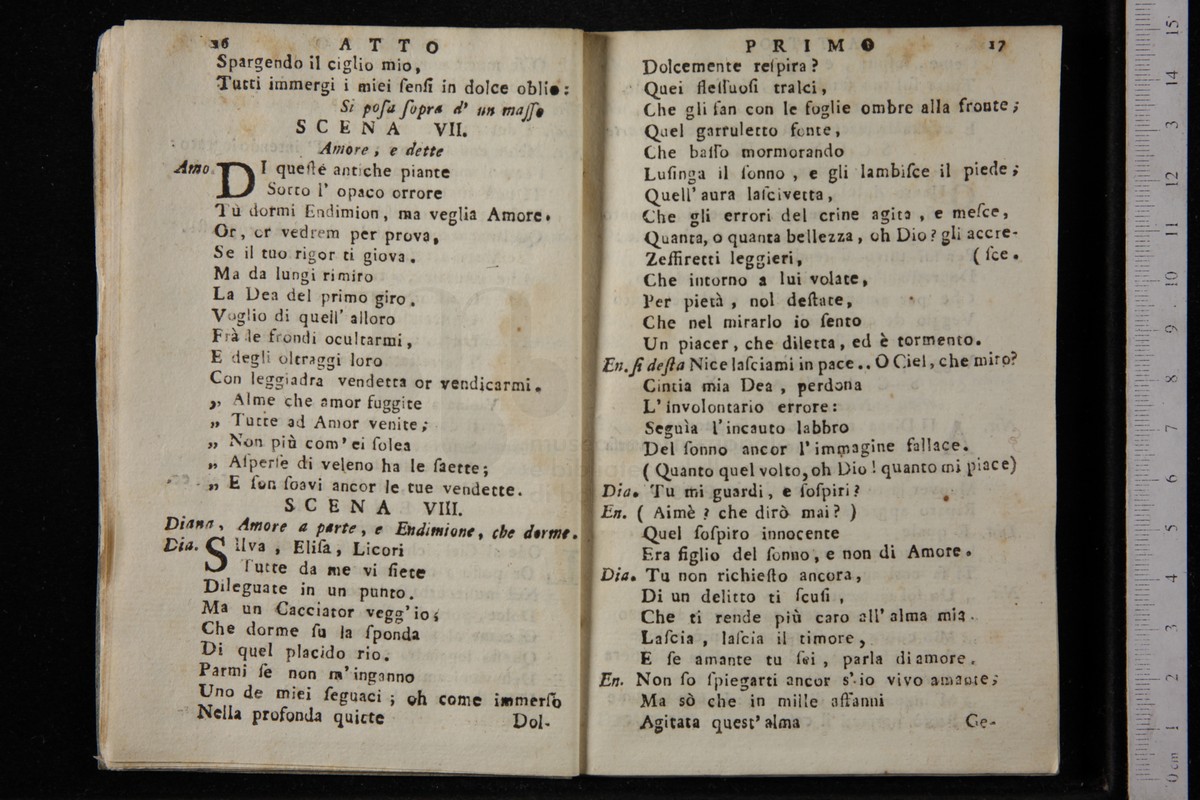 26 ATTO
Spargendo il ciglio mio,
Tutti immergi i miei ſenſi in dolce oblio:
Si poſa ſopra d' un maſſo
SCENA VII.
Amore, e dette
Amo. DI queſte antiche piante
Sotto l' opaco orrore
Tù dormi Endimion, ma veglia Amore.
Or, or vedrem per prova,
Se il tuo rigor ti giova.
Ma da lungi rimiro
La Dea del primo giro.
Voglio di quell' alloro
Frà le frondi ocultarmi,
E degli oltraggi loro
Con leggiadra vendetta or vendicarmi.
„ Alme che amor fuggite
„ Tutte ad Amor venite;
„ Non più com' ei ſolea
„ Aſperſe di veleno ha le ſaette;
„ E ſon ſoavi ancor le tue vendette.
SCENA VIII.
Diana, Amore a parte, e Endimione, che dorme.
Dia. SIlva, Eliſa, Licori
Tutte da me vi ſiete
Dileguate in un punto.
Ma un Cacciator vegg' io;
Che dorme ſu la ſponda
Di quel placido rio.
Parmi ſe non m' inganno
Uno de miei ſeguaci; oh come immerſo
Nella profonda quiete
Dol-
PRIMO 17
Dolcemente reſpira?
Quei fleſſuoſi tralci,
Che gli fan con le foglie ombre alla fronte;
Quel garruletto fonte,
Che baſſo mormorando
Luſinga il ſonno, e gli lambiſce il piede;
Quell' aura laſcivetta,
Che gli errori del crine agita, e meſce,
Quanta, o quanta bellezza, oh Dio? gli accre-
Zeffiretti leggieri, (ſce.
Che intorno a lui volate,
Per pietà, nol deſtate,
Che nel mirarlo io ſento
Un piacer, che diletta, ed è tormento.
En. ſi deſta Nice laſciami in pace.. O Ciel, che miro?
Cintia mia Dea, perdona
L' involontario errore:
Seguìa l' incauto labbro
Del ſonno ancor l' immagine fallace.
(Quanto quel volto, oh Dio! quanto mi piace)
Dia. Tu mi guardi, e ſoſpiri?
En. (Aimè? che dirò mai?)
Quel ſoſpiro innocente
Era figlio del ſonno, e non di Amore.
Dia. Tu non richieſto ancora,
Di un delitto ti ſcuſi,
Che ti rende più caro all' alma mia.
Laſcia, laſcia il timore,
E ſe amante tu ſei, parla di amore.
En. Non ſo ſpiegarti ancor s' io vivo amante;
Ma sò che in mille affanni
Agitata quest' alma
Ge-
0 cm 1 2 3 4 5 6 7 8 9 10 11 12 13 14 15